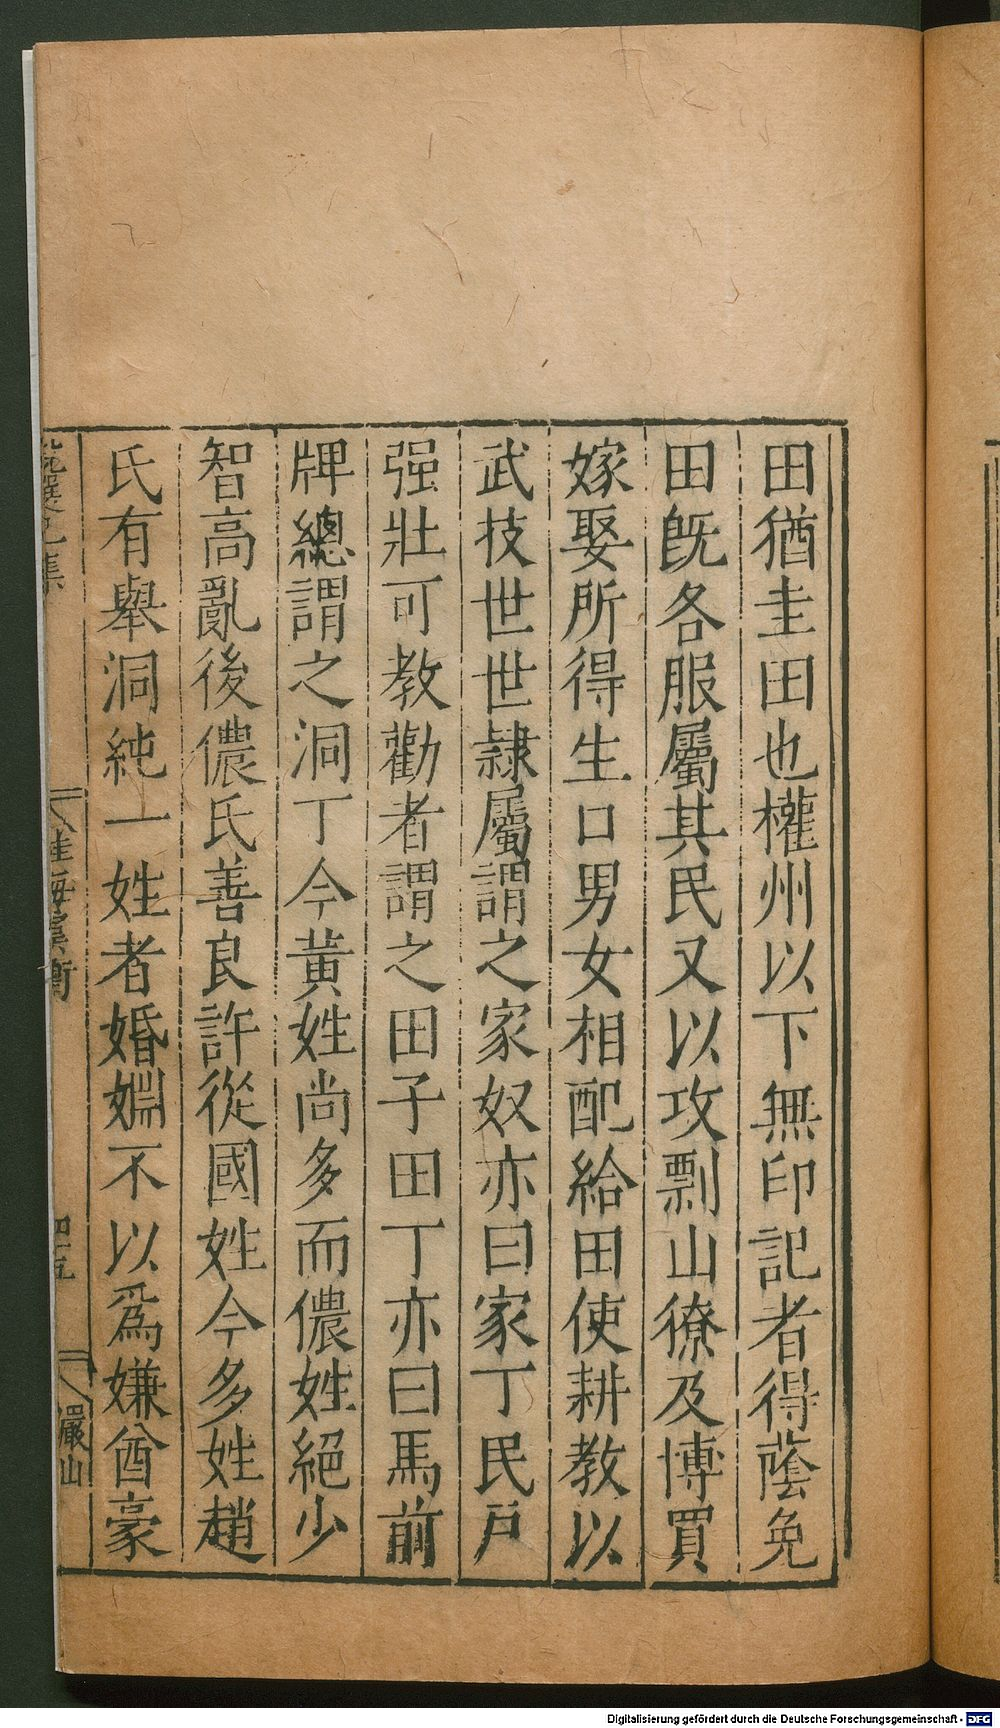 田猶圭田也權州以下無印記者得蔭免
田旣各服屬其民又以攻剽山獠及博買
嫁娶所得生口男女相配給田使耕教以
武技世世隸屬謂之家奴亦曰家丁民戸
强壯可教勸者謂之田子田丁亦曰馬前
牌總謂之洞丁今黃姓尚多而儂姓絕少
智高亂後儂氏善良許從國姓今多姓趙
氏有舉洞純一姓者婚姻不以爲嫌酋豪
桂海虞衡
巖山
Digitalisierung gefördert durch die Deutsche Forschungsgemeinschaft - DFG